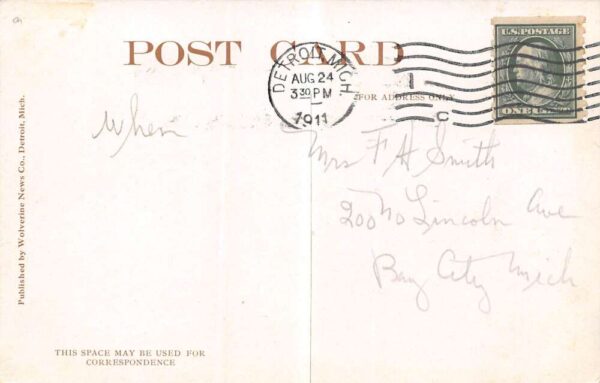 POST CARD
DETROIT, MICH.
AUG 24
3 30 PM
1911
1
C
U.S. POSTAGE
ONE CENT
FOR ADDRESS ONLY
When
Mrs F H Smith
200 No Lincoln Ave
Bay City Mich
Published by Wolverine News Co., Detroit, Mich.
THIS SPACE MAY BE USED FOR
CORRESPONDENCE